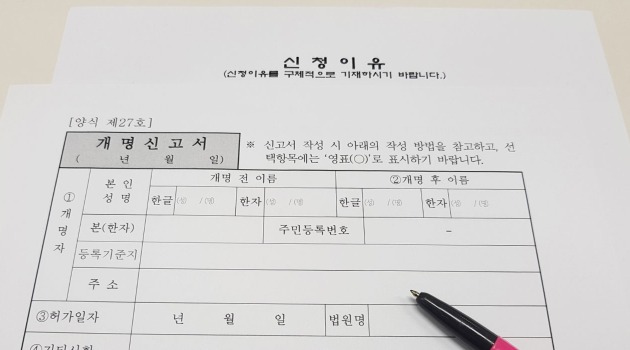 신 청 이 유
(신청이유를 구체적으로 기재하시기 바랍니다.)
[양식 제27호]
개 명 신 고 서
( 년 월 일)
※ 신고서 작성 시 아래의 작성 방법을 참고하고, 선
택항목에는 '영표(○)'로 표시하기 바랍니다.
①개명자
본 인
성 명
개명 전 이름
②개명 후 이름
한글 (성) / (명) 한자 (성) / (명) 한글 (성) / (명) 한자 (성) / (명)
본(한자) 주민등록번호 -
등록기준지
주 소
③허가일자 년 월 일 법원명
④기타사항